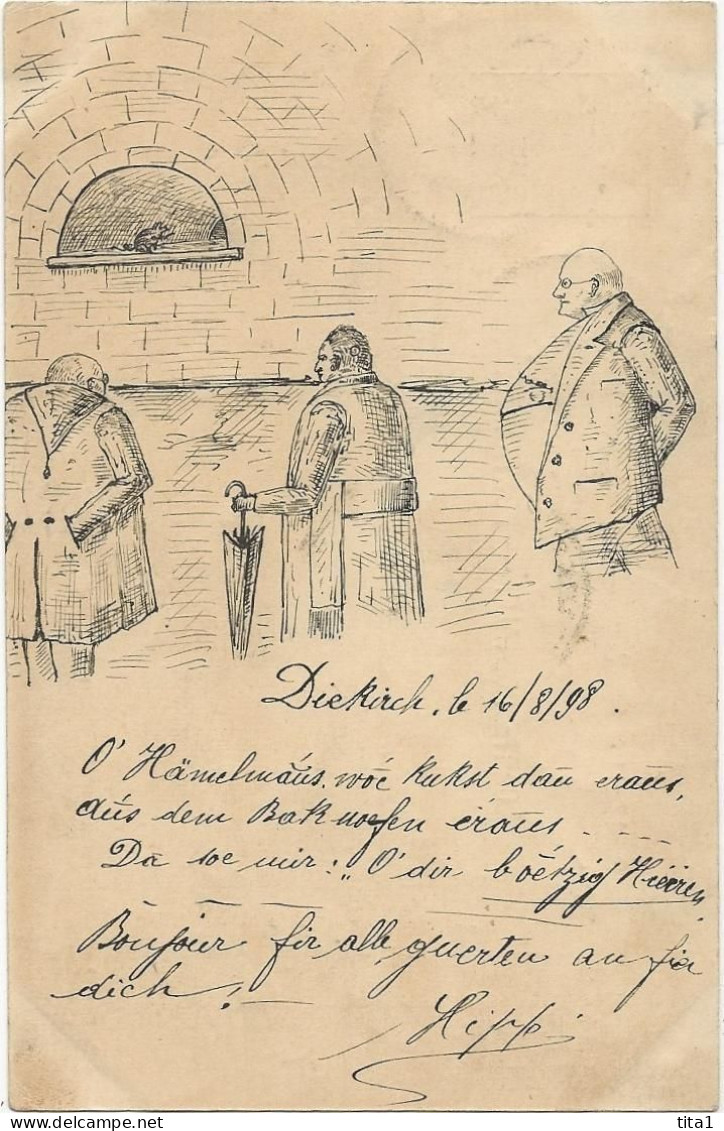 Diekirch, le 16/8/98.
O' Hämelmaus. woe kukst dau eraus,
aus dem Bak noefen eraus ....
Da soe mir: „O' dir boetzig Hieren.
Boujour fir all guerten an fir
dich!
Hippi
© tita1